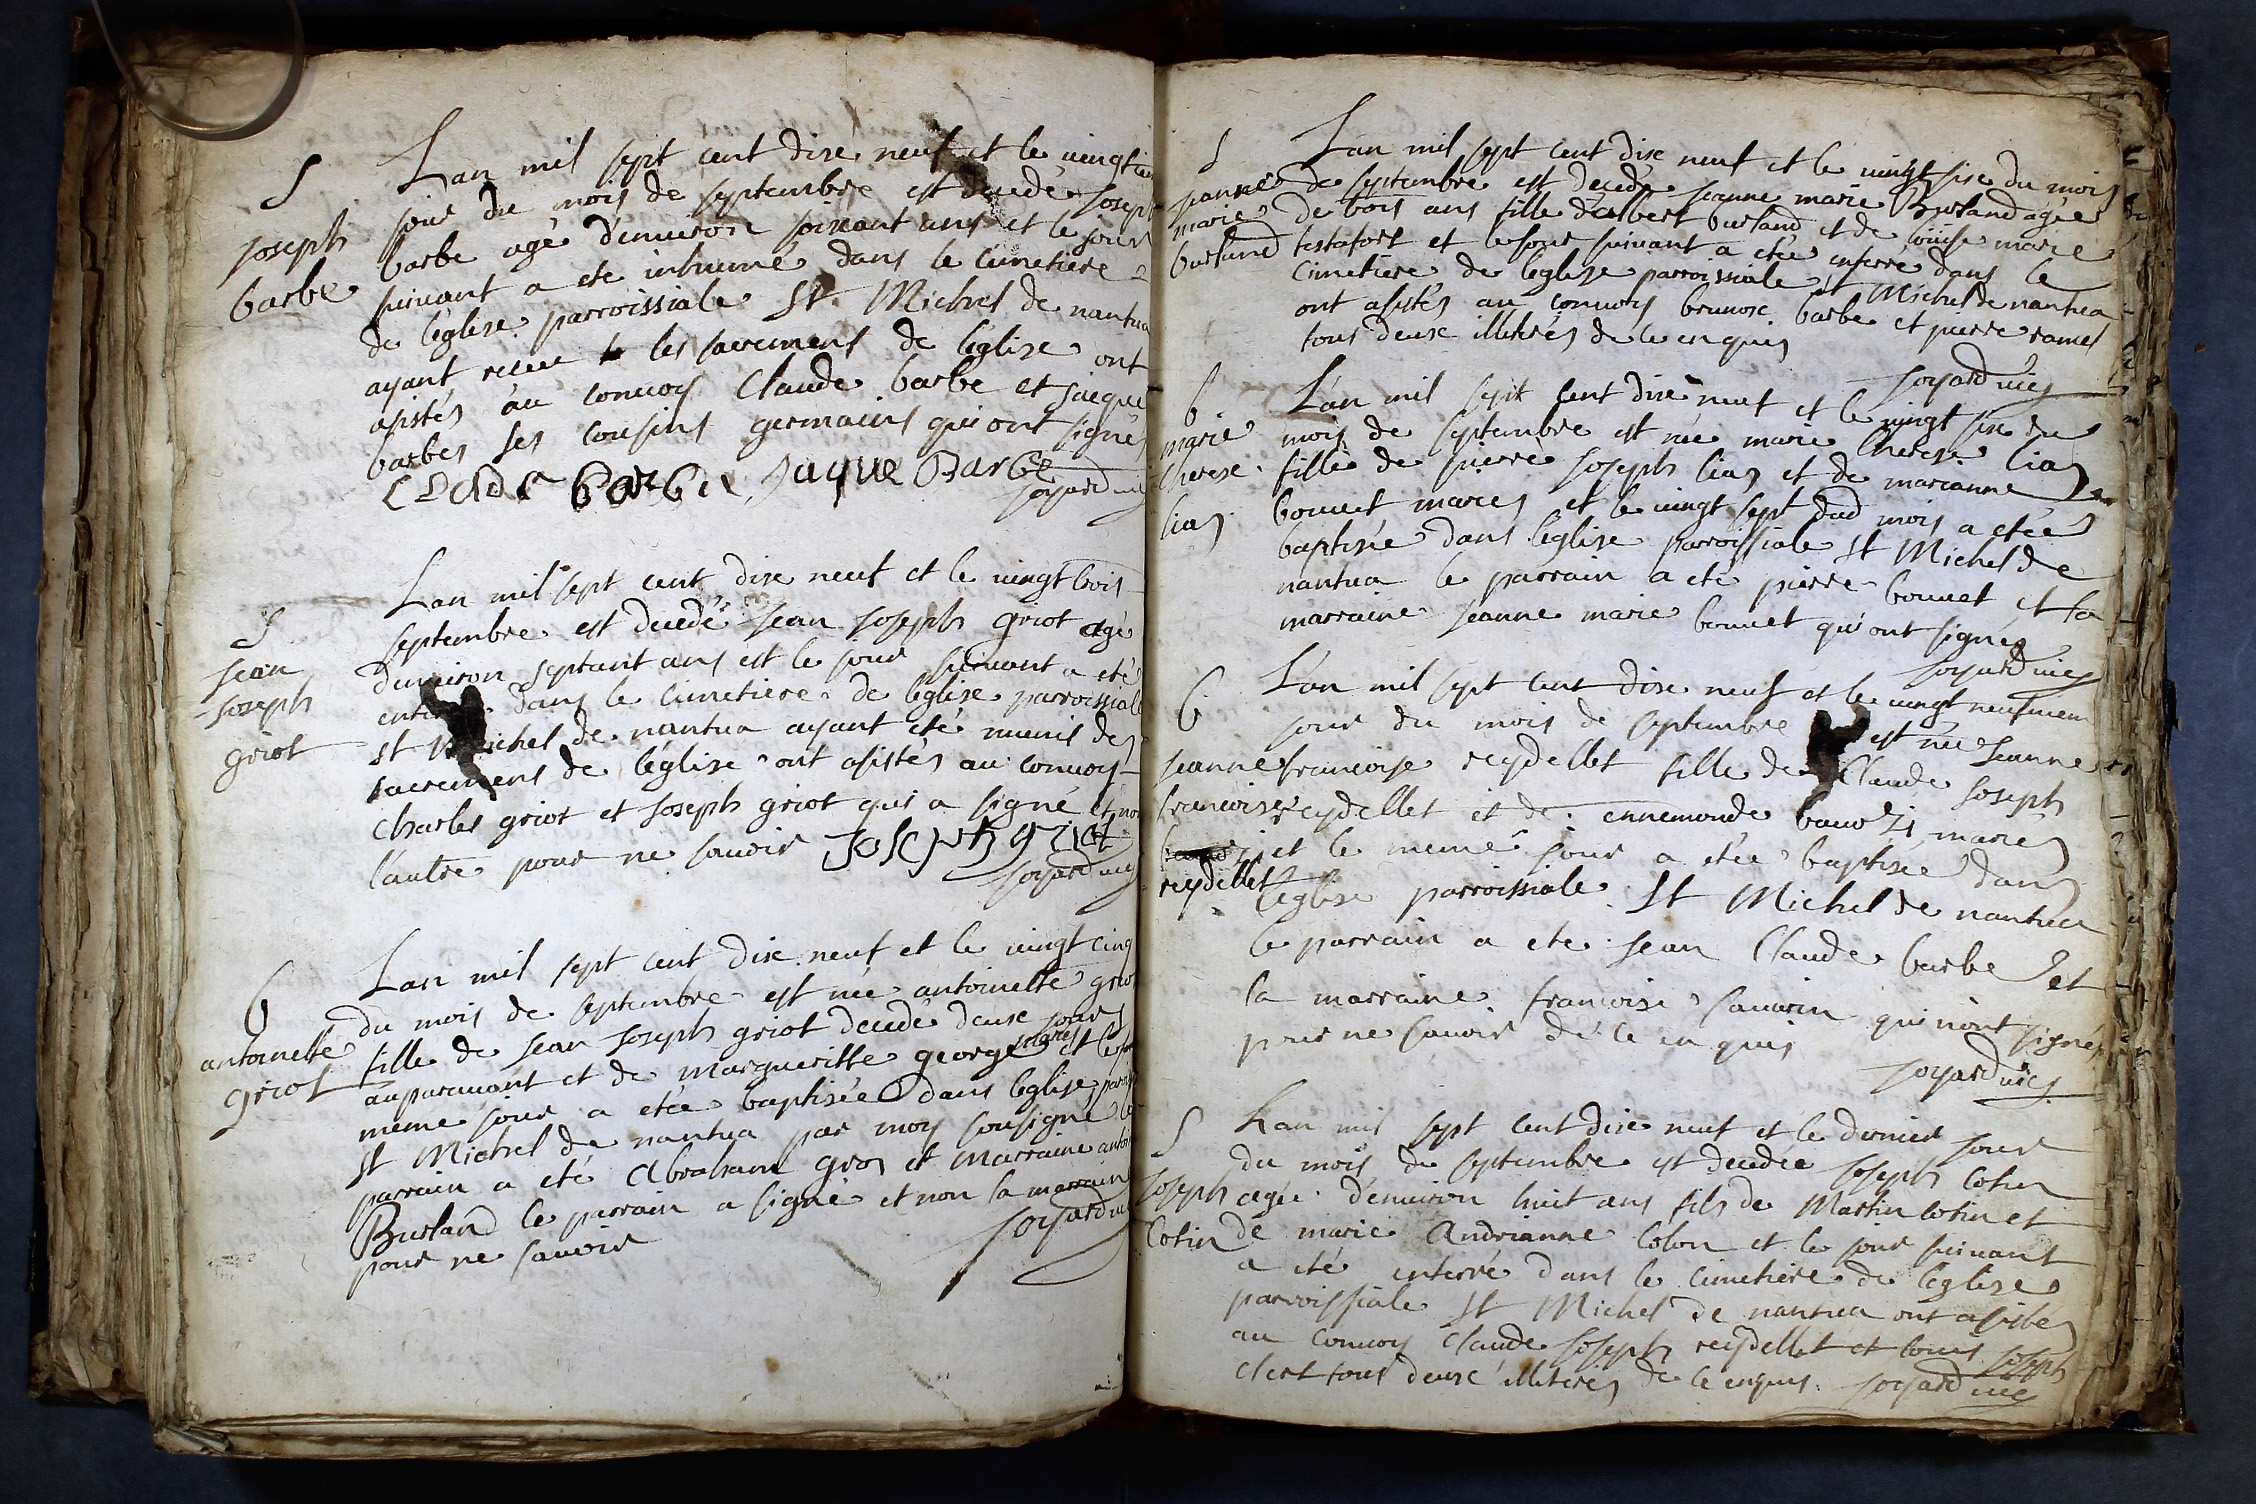 S
Joseph
barbe
Lan mil sept cent dixe neuf et le vingt
jour du mois de septembre est decedé Joseph
barbe agé d'environ soixant ans et le jour
suivant a eté inhumé dans le cimetiere
de l'église parroissiale St Michel de nantua
ayant receu les sacremens de l'église ont
asistés au convoy Claude barbe et jacque
barbes ses cousins germains qui ont signés
CLAUDE barbe Jaque Barbe
Joyard vic
S
jean
joseph
griot
Lan mil sept cent dixe neuf et le vingt trois
septembre est decedé jean joseph griot agé
d'environ septant ans est le jour suivant a eté
dans le cimetiere de l'église parroissiale
St Michel de nantua ayant eté munis des
sacremens de l'église ont asistés au convoy
Charles griot et joseph griot qui a signé et non
l'autre pour ne savoir Joseph griot
Joyard vic
b
antoinette
griot
Lan mil sept cent dixe neuf et le vingt cinq
du mois de septembre est née antoinette griot
fille de jean joseph griot decedé deux jours
auparavant et de margueritte george mariés et le
meme jour a etée baptisée dans leglise
St Michel de nantua par moy sousigné le
parrain a eté Abraham gros et marraine
Burland le parrain a signé et non la marraine
pour ne savoir
Joyard vic
S
jeanne
marie
burland
Lan mil sept cent dixe neuf et le vingt sixe du mois
de septembre est decedée jeanne marie Burland agée
de trois ans fille d'albert burland et de loüise marie
testafort et le jour suivant a etée enterré dans le
cimetiere de leglise parroissiale St Michel de nantua
ont asistés au convoy brunoe barbe et pierre ramel
tous deux illiterés de ce enquis
Joyard vic
b
marie
therese
lias
Lan mil sept cent dixe neuf et le vingt sixe du
mois de septembre est née marie therese lias
fille de pierre joseph lias et de marianne
bonnet mariés et le vingt sept dud mois a etée
baptisée dans léglise parroissiale St Michel de
nantua le parrain a eté pierre bonnet et la
marraine jeanne marie bonnet qui ont signés
Joyard vic
b
jeanne
francoise
reydellet
Lan mil sept cent dixe neuf et le vingt neufviem
jour du mois de septembre est née jeanne
francoise reydellet fille de Claude joseph
reydellet et de ennemonde mariés
et le meme jour a etée baptisée dans
l'église parroissiale St Michel de nantua
le parrain a eté jean Claude barbe et
la marraine francoise qui n'ont signés
pour ne savoir de ce enquis
Joyard vic
S
joseph
Cotin
Lan mil sept cent dixe neuf et le dernier jour
du mois de septembre est decedée joseph Cotin
agée d'environ huit ans fils de Martin Cotin et
de marie Andrianne Colon et le jour suivant
a eté enterré dans le cimetiere de leglise
parroissiale St Michel de nantua ont asistés
au convoy Claude joseph reydellet et louis joseph
Clert tous deux illiterés de ce enquis Joyard vic